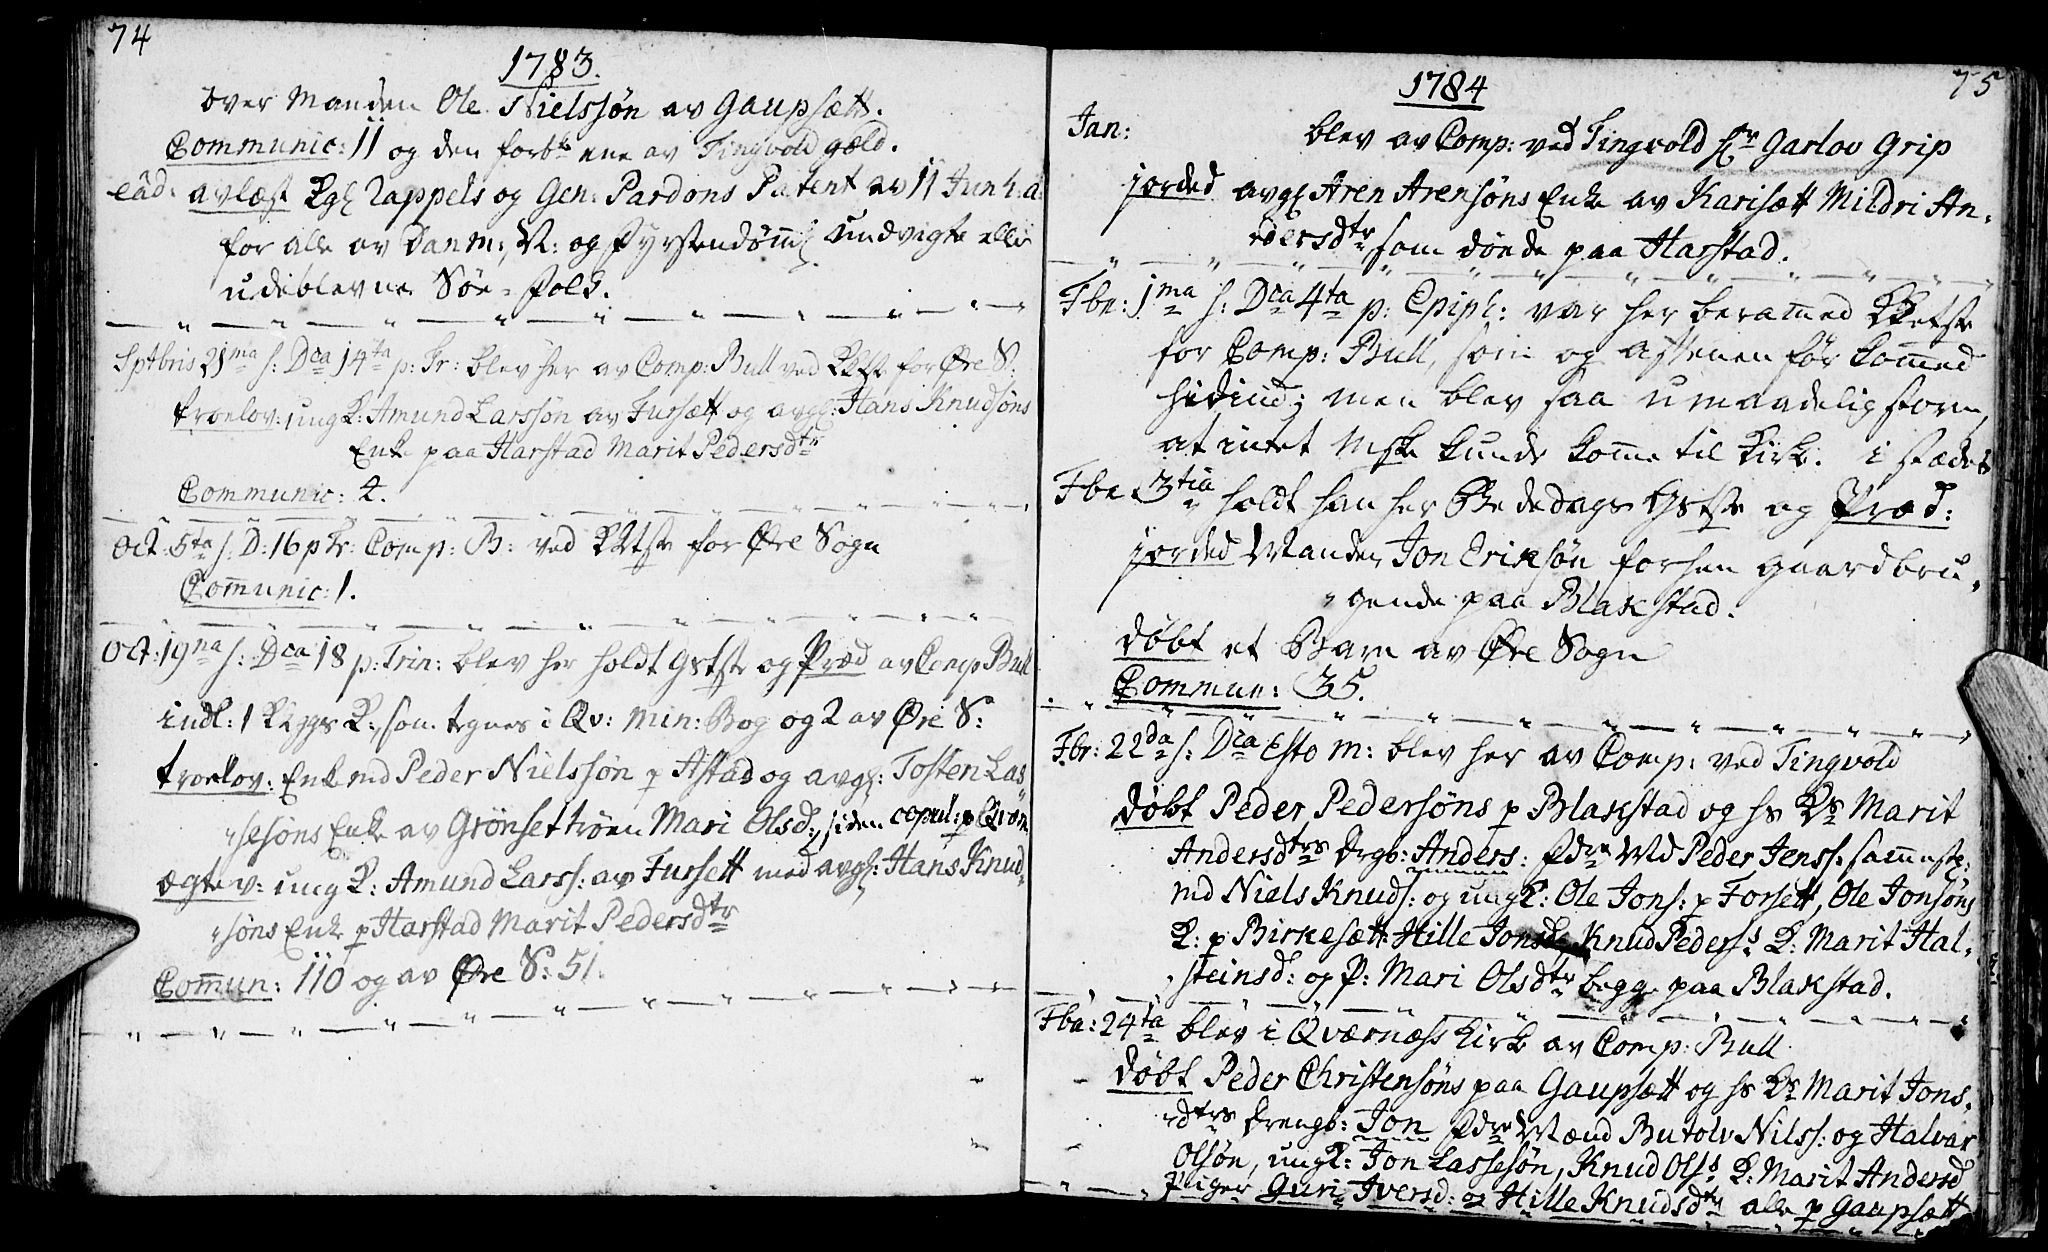 74
1783.
over Manden Ole Nielssön av Gaupsætt.
Communic: 11 og den forb ene av Tingvold gield.
eâd: avlæst Kgl Rappels og Gen: Pardons Patent av 11 Jun
for alle av Danm:, N: og Fyrstendöm undvigte eller
udeblevne Söe-folk.
Sptbris 21ma s: Dca 14ta p: Tr: blev her av Comp: Bull ved for Øre S:
troelov: ungk: Amund Larssön av Fursætt og avgl: Hans Knudsöns
Enke paa Harstad Marit Pedersdtr
Communic: 4.
Oct: 5ta s: D: 16 p Tr: Comp: B: ved for Øre Sogn
Com̄unic: 1.
Oct: 19na s: Dca 18 p: Trin: blev her holdt Gstste og Præd av Comp Bull
indl: 1 K: som tegnes i Qv: Min: Bog og 2 av Øre S:
troelov: Enkemd Peder Nielssön p Astad og avgl: Tosten Las
sesöns Enke av Grönsettröen Mari Olsd:, siden copul: p Qvern
Ægtev: ungk: Amund Larss: av Fursett med avgl: Hans Knud
söns Enke p Harstad Marit Pedersdtr
Com̄un: 110 og av Øre S: 51.
75
1784
Jan: blev av Comp: ved Tingvold Hr Garlov Grip
jorded avgl Aren Arensöns Enke av Karisætt Mildri An
dersdtr, som döede paa Harstad.
Fbr: 1ma s: Dca 4ta p: Epiph: var her beram̄ed
for Comp: Bull, som og aftenen för kom̄ed
hidind; men blev saa umaadelig storm,
at intet Mske kunde kom̄e til Kirke. i stædet
Fbr 3tia holdt han her Bededags Gstste og Præd:
jorded Manden Jon Eriksön forhen gaardbru
gende paa Blakstad.
döbt et Barn av Øre Sogn
Commun: 35.
Fbr: 22da s: Dca Esto m: blev her av Comp: ved Tingvold
döbt Peder Pedersöns p Blakstad og hs Ks Marit
Andersdtrs drgb: Anders: Fdre Md Peder Jenss: sam̄estd:
md Niels Knuds: og ungk: Ole Jons: p Forsett, Ole Jonsöns
K: p Birkesætt Hille Jonsd, Knud Peders K: Marit Hal
steinsd: og P: Mari Olsdtr begge paa Blakstad.
Fbr: 24ta blev i Qværnæss Kirke av Comp: Bull
döbt Peder Christensöns paa Gaupsætt og hs Ks Marit Jons
dtrs drengb: Jon Fdre Mænd Butolv Nilss: og Halvar
Olsön, ungk: Jon Lassesön, Knud Olss K: Marit Andersd
Piger Guri Iversd: og Hille Knudsdtr alle p Gaupsætt